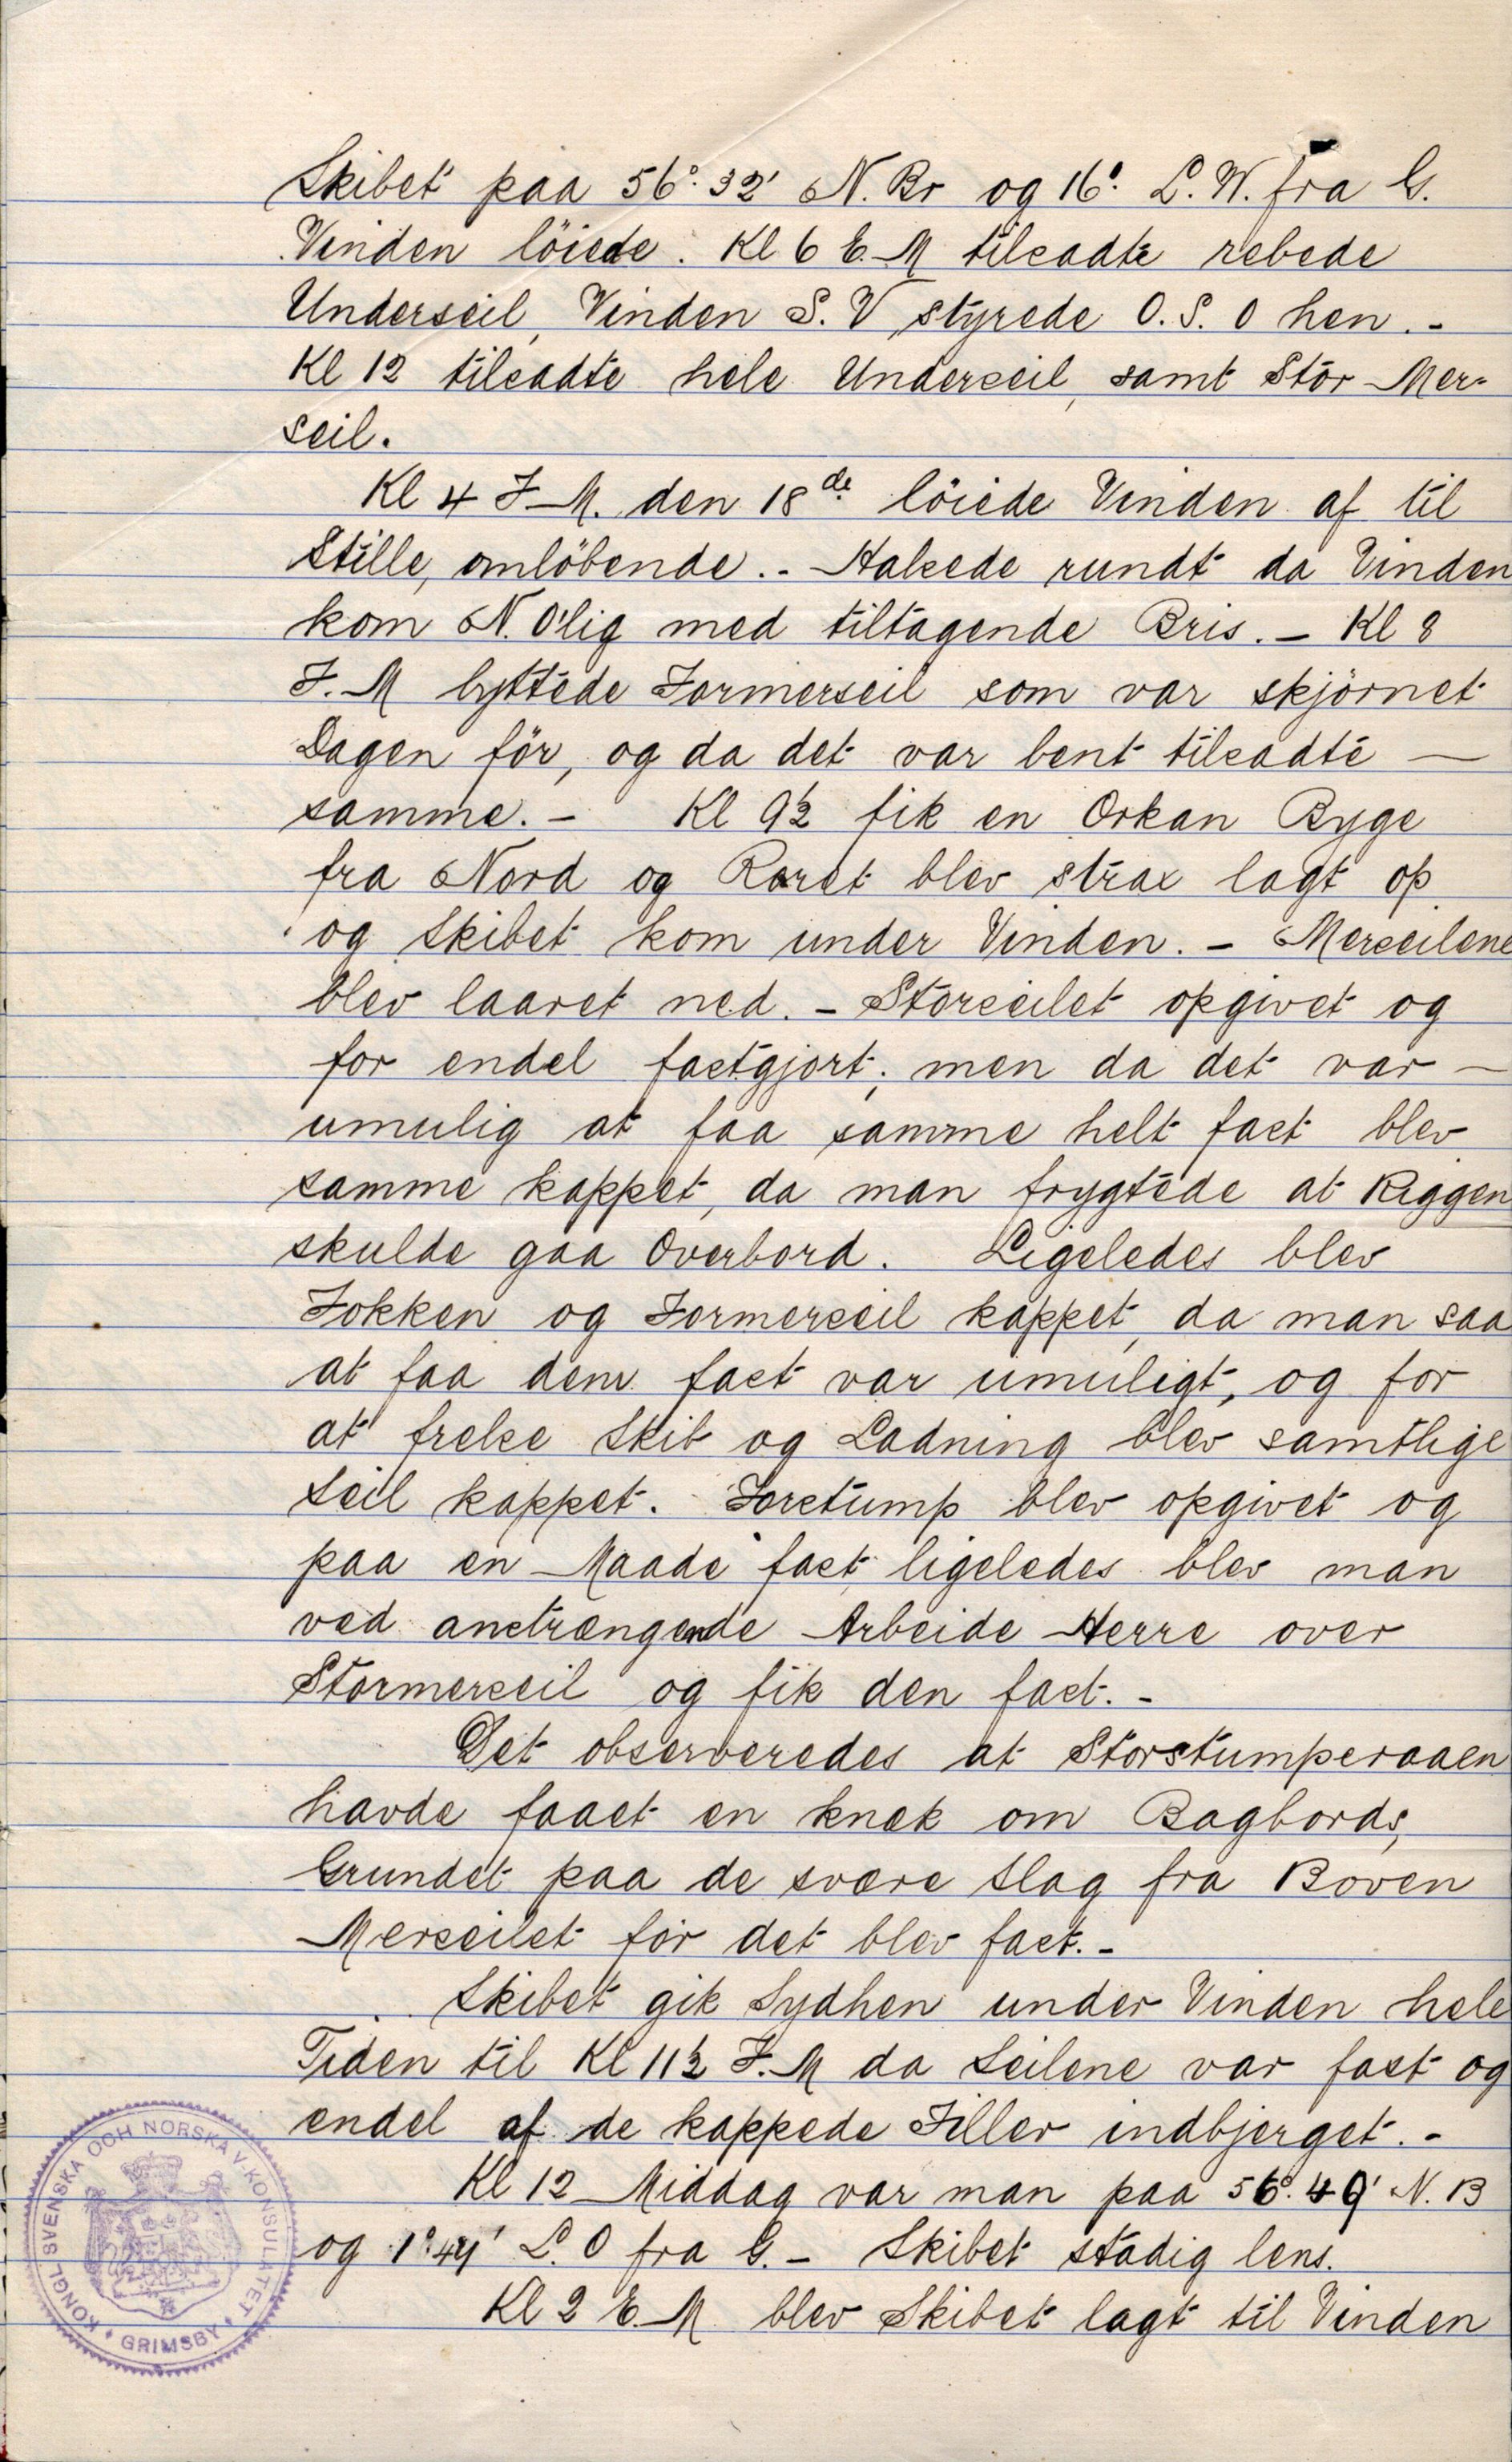 Skibet paa 56°. 32' N. Br og 16°. L. W. fra G.
Vinden löiede. Kl 6 E. M tilsadte rebede
Underseil, Vinden S. V styrede O. S. O hen. -
Kl 12 tilsadte hele Underseil, samt Stor Mer-
seil.
Kl 4 F. M. den 18de löiede Vinden af til
Stille, omlöbende. - Halsede rundt da Vinden
kom N. O'lig med tiltagende Bris. - Kl 8
F. M byttede Formerseil som var skjörnet
Dagen för, og da det var bent tilsadte —
samme. - Kl 9½ fik en Orkan Byge
fra Nord og Roret blev strax lagt op
og Skibet kom under Vinden. - Merseilene
blev laaret ned. - Storseilet opgivet og
for endel fastgjort; men da det var —
umulig at faa samme helt fast blev
samme kappet, da man frygtede at Riggen
skulde gaa Overbord. Ligeledes blev
Fokken og Formerseil kappet, da man saa
at faa dem fast var umuligt, og for
at frelse Skib og Ladning blev samtlige
Seil kappet. Forstump blev opgivet og
paa en Maade fast ligeledes blev man
ved anstrængende Arbeide Herre over
Stormerseil og fik den fast. -
Det observeredes at Storstumperaaen
havde faaet en knæk om Bagbords,
Grundet paa de svære Slag fra Boven
Merseilet för det blev fast. -
Skibet gik Sydhen under Vinden hele
Tiden til Kl 11½ F. M da Seilene var fast og
endel af de kappede Filler indbjerget. -
Kl 12 Middag var man paa 56°. 49' N. B
og 1°. 44' L. O fra G. - Skibet stadig lens.
Kl 2 E. M blev Skibet lagt til Vinden
KONGL SVENSKA OCH NORSKA V KONSULATET
GRIMSBY